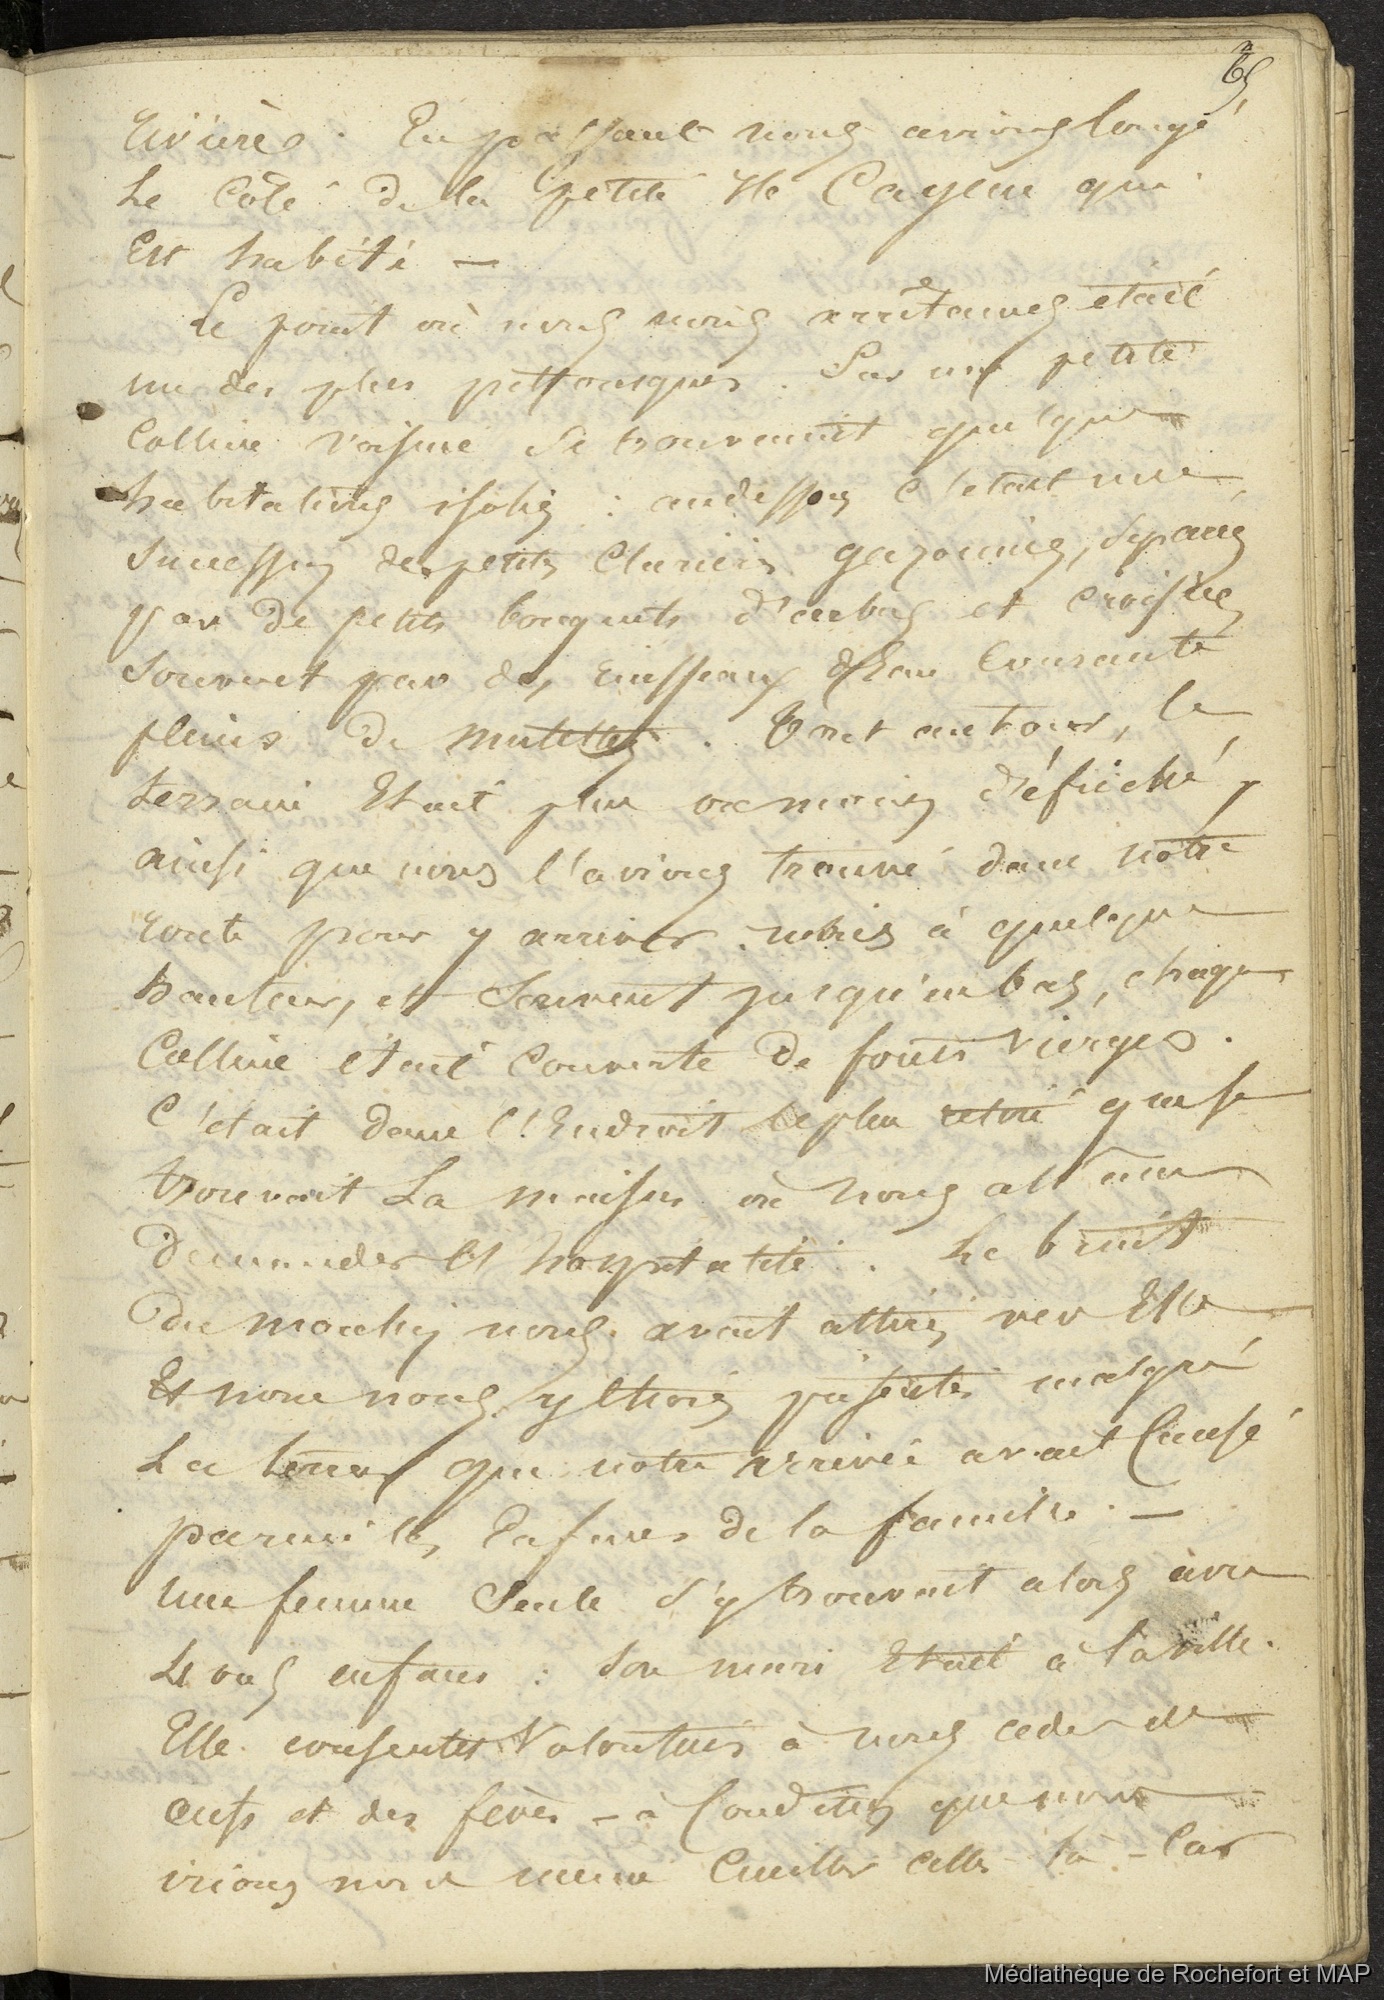 65
rivière. En passant nous avions longé
le côté de la petite Ile Cayene qui
Est habité —
Le point où nous nous arrêtames était
un des plus pittoresques. Sur une petite
Colline voisine se trouvaient quelques
habitations isolées : au dessous c'était une
succession de petits clarières gazonnées, séparées
par de petits bouquets d'arbres et croisées
souvent par des ruisseaux d'Eau courante
pleins de . Tout autour, le
terrain Etait plus ou moins défriché,
ainsi que nous l'avions trouvé dans notre
route pour y arriver. mais à quelque
hauteur, et souvent jusqu'en bas, chaque
Colline était couverte de forêts vierges.
C'était dans l'Endroit le plus retiré que se
trouvait La maison où nous allames
demander l'hospitalité. Le bruit
du nous avait attirés vers Elle
Et nous nous y étions présentés malgré
La terreur que notre arrivée avait Causé
parmi les Enfans de la famille. —
Une femme Seule s'y trouvait alors avec
ses enfans : son mari Etait à la ville.
Elle consentit Volontiers à nous céder des
œufs et des fèves — à Condition que nous
irions nous même Cueillir celles-là — Car
Médiathèque de Rochefort et MAP